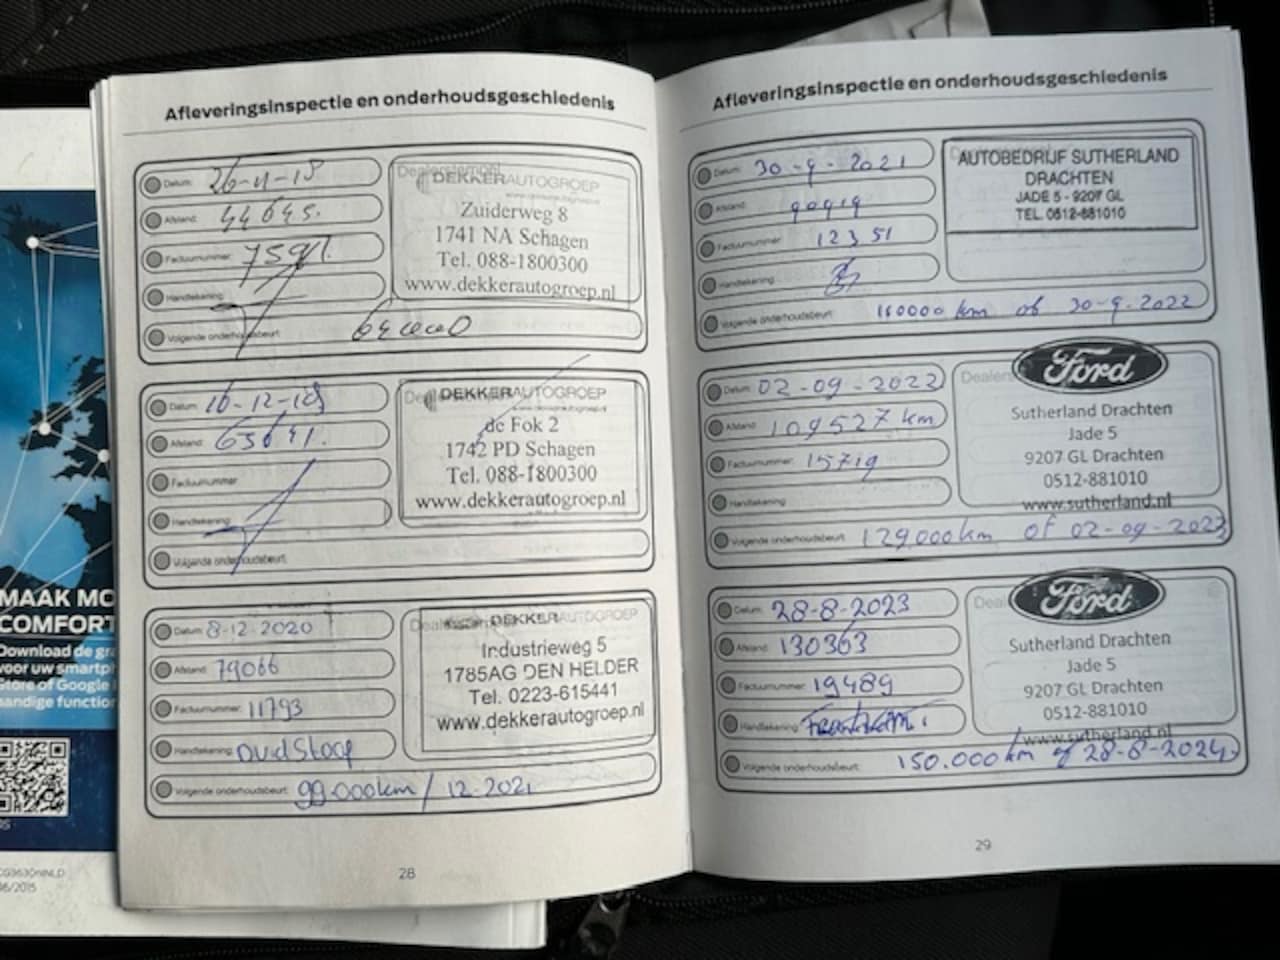 MAAK MO
COMFORT
Download de gra
voor uw smartph
Store of Google
handige function
06/2015
Afleveringsinspectie en onderhoudsgeschiedenis
Datum: 26-11-18
Afstand: 44645.
Factuurnummer:
Handtekening:
Volgende onderhoudsbeurt:
DEKKERAUTOGROEP
Zuiderweg 8
1741 NA Schagen
Tel. 088-1800300
www.dekkerautogroep.nl
Datum: 16-12-19
Afstand: 65641.
Factuurnummer:
Handtekening:
Volgende onderhoudsbeurt:
DEKKERAUTOGROEP
de Fok 2
1742 PD Schagen
Tel. 088-1800300
www.dekkerautogroep.nl
Datum: 8-12-2020
Afstand: 79066
Factuurnummer: 11793
Handtekening:
Volgende onderhoudsbeurt: 99.000km / 12.2021
DEKKERAUTOGROEP
Industrieweg 5
1785AG DEN HELDER
Tel. 0223-615441
www.dekkerautogroep.nl
28
Afleveringsinspectie en onderhoudsgeschiedenis
Datum: 30-9-2021
Afstand: 90919
Factuurnummer: 12351
Handtekening:
Volgende onderhoudsbeurt: 110000 km of 30-9-2022
AUTOBEDRIJF SUTHERLAND
DRACHTEN
JADE 5 - 9207 GL
TEL. 0512-881010
Datum: 02-09-2022
Afstand: 109527 km
Factuurnummer: 15719
Handtekening:
Volgende onderhoudsbeurt: 129.000km of 02-09-2023
Ford
Sutherland Drachten
Jade 5
9207 GL Drachten
0512-881010
www.sutherland.nl
Datum: 28-8-2023
Afstand: 130363
Factuurnummer: 19489
Handtekening:
Volgende onderhoudsbeurt: 150.000km of 28-8-2024.
Ford
Sutherland Drachten
Jade 5
9207 GL Drachten
0512-881010
www.sutherland.nl
29